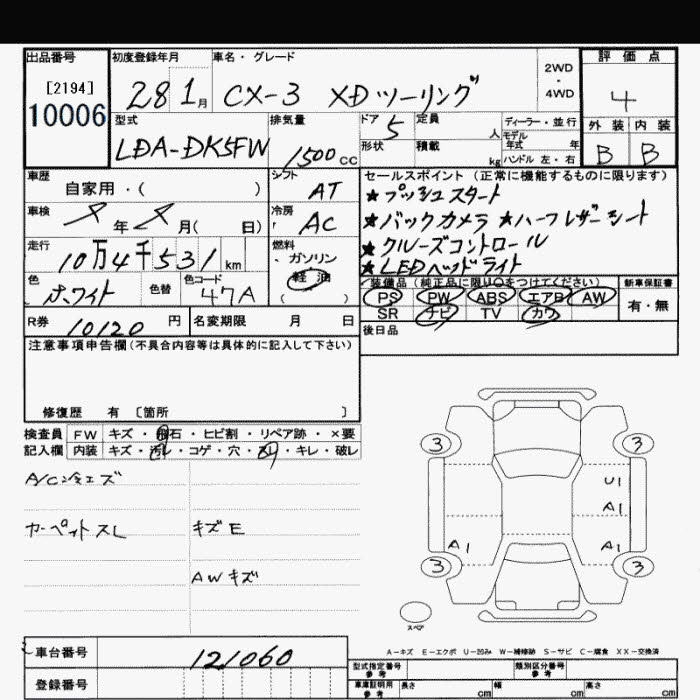 出品番号 初度登録年月 車名・グレード 評価点
[2194] 28 1月 CX-3 XDツーリング 2WD・4WD 4
10006
型式 排気量 ドア 定員 ディーラー・並行 外装 内装
LDA-DK5FW 1500cc 5 人 モデル年式 年 B B
形状 積載 kg ハンドル 左・右
車歴 シフト セールスポイント (正常に機能するものに限ります)
自家用・( ) AT ★プッシュスタート
車検 冷房 ★バックカメラ ★ハーフレザーシート
年 月( 日) AC
走行 燃料 ★クルーズコントロール
10万4千531km ガソリン ★LEDヘッドライト
色 色替 色コード 軽油 装備品(純正品に限り○をつけてください) 新車保証書
ホワイト 47A ( ) PS PW ABS エアB AW 有・無
SR ナビ TV カワ
R券 10120円 名変期限 月 日 後日品
注意事項申告欄(不具合内容等は具体的に記入して下さい)
修復歴 有 〔箇所 〕
検査員 FW キズ・飛石・ヒビ割・リペア跡・×要
記入欄 内装 キズ・汚レ・コゲ・穴・スリ・キレ・破レ
3 3
A/C冷エズ
U1
A1
カーペットスレ キズE
A1 A1
AWキズ
3 3
スペア
A-キズ E-エクボ U-凹み W-補修跡 S-サビ C-腐食 XX-交換済
車台番号 121060
型式指定番号 参考 類別区分番号 参考
登録番号 車庫証明用 参考 長さ cm 幅 cm 高さ cm